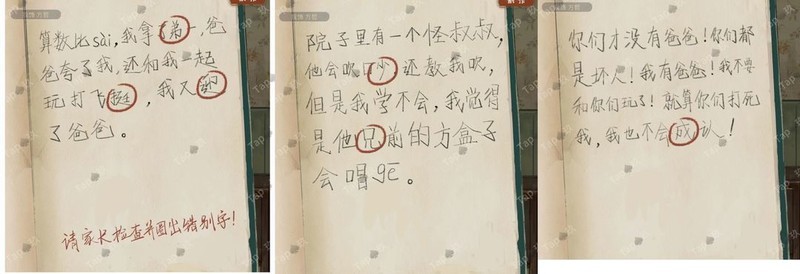 算数比sài,我拿了弟一,爸
爸夸了我,还和我一起
玩打飞挺,我又迎
了爸爸。
请家长检查并圈出错别字!
院子里有一个怪叔叔,
他会吹口吵还教我吹,
但是我学不会,我觉得
是他兄前的方盒子
会唱gē。
你们才没有爸爸!你们都
是坏人!我有爸爸!我不要
和你们玩了!就算你们打死
我,我也不会成认!